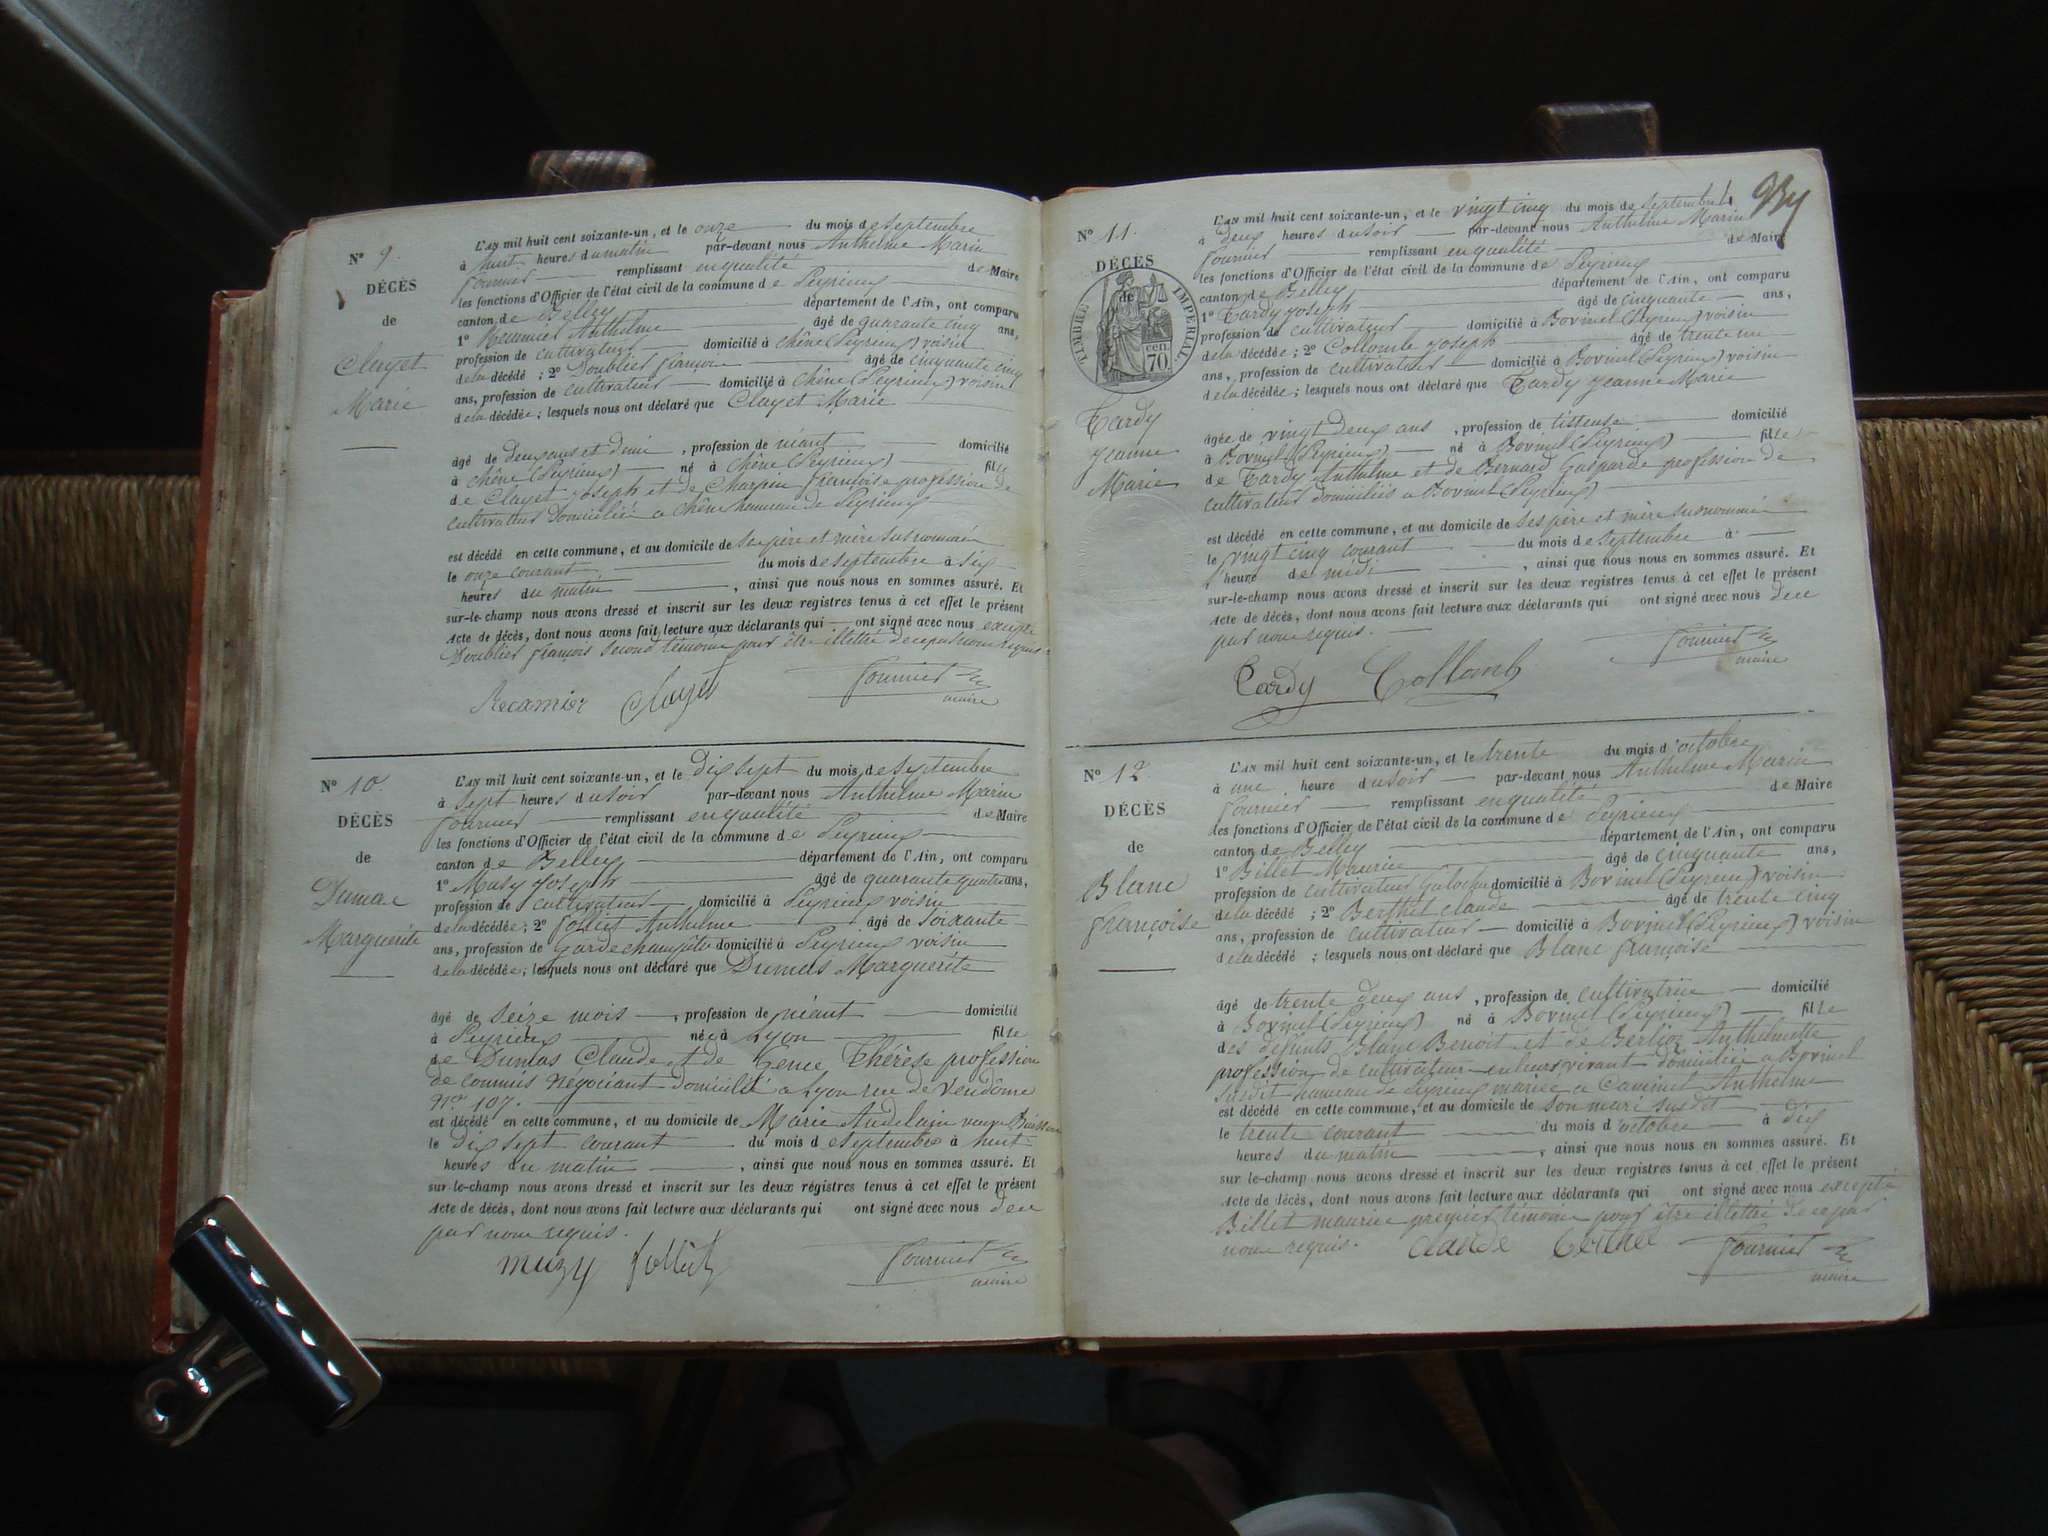 N° 9.
DÉCÈS
de
Clayet
Marie
L'AN mil huit cent soixante-un, et le onze du mois de septembre
à huit heures du matin par-devant nous Anthelme Marin
Fournier remplissant en qualité de Maire
les fonctions d'Officier de l'état civil de la commune de Peyrieux
canton de Belley département de l'Ain, ont comparu
1° Recamier Anthelme âgé de quarante cinq ans,
profession de cultivateur domicilié à Chêne (Peyrieux) voisin
de la décédé ; 2° Doublier françois âgé de cinquante cinq
ans, profession de cultivateur domicilié à Chêne (Peyrieux) voisin
de la décédée ; lesquels nous ont déclaré que Clayet Marie
âgé de deux ans et demi, profession de néant domicilié
à Chêne (Peyrieux) né à Chêne (Peyrieux) fille
de Clayet Joseph et de Charpin françoise profession de
cultivateur domiciliés a Chêne hameau de Peyrieux
est décédé en cette commune, et au domicile de ses père et mère susnommés
le onze courant du mois de septembre à six
heures du matin, ainsi que nous nous en sommes assuré. Et
sur-le-champ nous avons dressé et inscrit sur les deux registres tenus à cet effet le présent
Acte de décès, dont nous avons fait lecture aux déclarants qui ont signé avec nous excepté
Doublier françois second témoin pour être illettré de ce par nous requis
Recamier Clayet Fournier
maire
N° 10.
DÉCÈS
de
Dumas
Marguerite
L'AN mil huit cent soixante-un, et le dix sept du mois de septembre
à sept heures du soir par-devant nous Anthelme Marin
Fournier remplissant en qualité de Maire
les fonctions d'Officier de l'état civil de la commune de Peyrieux
canton de Belley département de l'Ain, ont comparu
1° Muzy Joseph âgé de quarante quatre ans,
profession de cultivateur domicilié à Peyrieux voisin
de la décédée ; 2° follict Anthelme âgé de soixante
ans, profession de Garde champêtre domicilié à Peyrieux voisin
de la décédée ; lesquels nous ont déclaré que Dumas Marguerite
âgé de seize mois, profession de néant domicilié
à Peyrieux née à Lyon fille
de Dumas Claude et de Thérèse profession
de commis négociant domicilié a Lyon rue de vendôme
N° 107.
est décédé en cette commune, et au domicile de Marie veuve
le dix sept courant du mois de septembre à huit
heures du matin, ainsi que nous nous en sommes assuré. Et
sur-le-champ nous avons dressé et inscrit sur les deux registres tenus à cet effet le présent
Acte de décès, dont nous avons fait lecture aux déclarants qui ont signé avec nous de ce
par nous requis.
muzy follict Fournier
maire
N° 11.
DÉCÈS
de
TIMBRE IMPÉRIAL.
70 cen.
Tardy
Jeanne
Marie
L'AN mil huit cent soixante-un, et le vingt cinq du mois de septembre
à deux heures du soir par-devant nous Anthelme Marin
Fournier remplissant en qualité de Maire
les fonctions d'Officier de l'état civil de la commune de Peyrieux
canton de Belley département de l'Ain, ont comparu
1° Tardy Joseph âgé de cinquante ans,
profession de cultivateur domicilié à Bovinel (Peyrieux) voisin
de la décédée ; 2° Collomb Joseph âgé de trente un
ans, profession de cultivateur domicilié à Bovinel (Peyrieux) voisin
de la décédée ; lesquels nous ont déclaré que Tardy Jeanne Marie
âgée de vingt deux ans, profession de tisseuse domicilié
à Bovinel (Peyrieux) né à Bovinel (Peyrieux) fille
de Tardy Anthelme et de Bernard Gasparde profession de
cultivateur domiciliés a Bovinel (Peyrieux)
est décédé en cette commune, et au domicile de ses père et mère susnommés
le vingt cinq courant du mois de septembre à
l'heure de midi, ainsi que nous nous en sommes assuré. Et
sur-le-champ nous avons dressé et inscrit sur les deux registres tenus à cet effet le présent
Acte de décès, dont nous avons fait lecture aux déclarants qui ont signé avec nous de ce
par nous requis.
Tardy Collomb Fournier
maire
N° 12.
DÉCÈS
de
Blanc
françoise
L'AN mil huit cent soixante-un, et le trente du mois d'octobre
à une heure du soir par-devant nous Anthelme Marin
Fournier remplissant en qualité de Maire
les fonctions d'Officier de l'état civil de la commune de Peyrieux
canton de Belley département de l'Ain, ont comparu
1° Billet Maurice âgé de cinquante ans,
profession de cultivateur domicilié à Bovinel (Peyrieux) voisin
de la décédé ; 2° Berthet claude âgé de trente cinq
ans, profession de cultivateur domicilié à Bovinel (Peyrieux) voisin
de la décédé ; lesquels nous ont déclaré que Blanc françoise
âgé de trente deux ans, profession de cultivatrice domicilié
à Bovinel (Peyrieux) né à Bovinel (Peyrieux) fille
des défunts Blanc Benoit et de Berlioz Anthelmette
profession de cultivateur en leur vivant domiciliés a Bovinel
susdit hameau de Peyrieux mariée a Anthelme
est décédé en cette commune, et au domicile de son mari susdit
le trente courant du mois d'octobre à dix
heures du matin, ainsi que nous nous en sommes assuré. Et
sur-le-champ nous avons dressé et inscrit sur les deux registres tenus à cet effet le présent
Acte de décès, dont nous avons fait lecture aux déclarants qui ont signé avec nous excepté
Billet maurice premier témoin pour être illettré de ce par
nous requis. Claude Berthet Fournier
maire